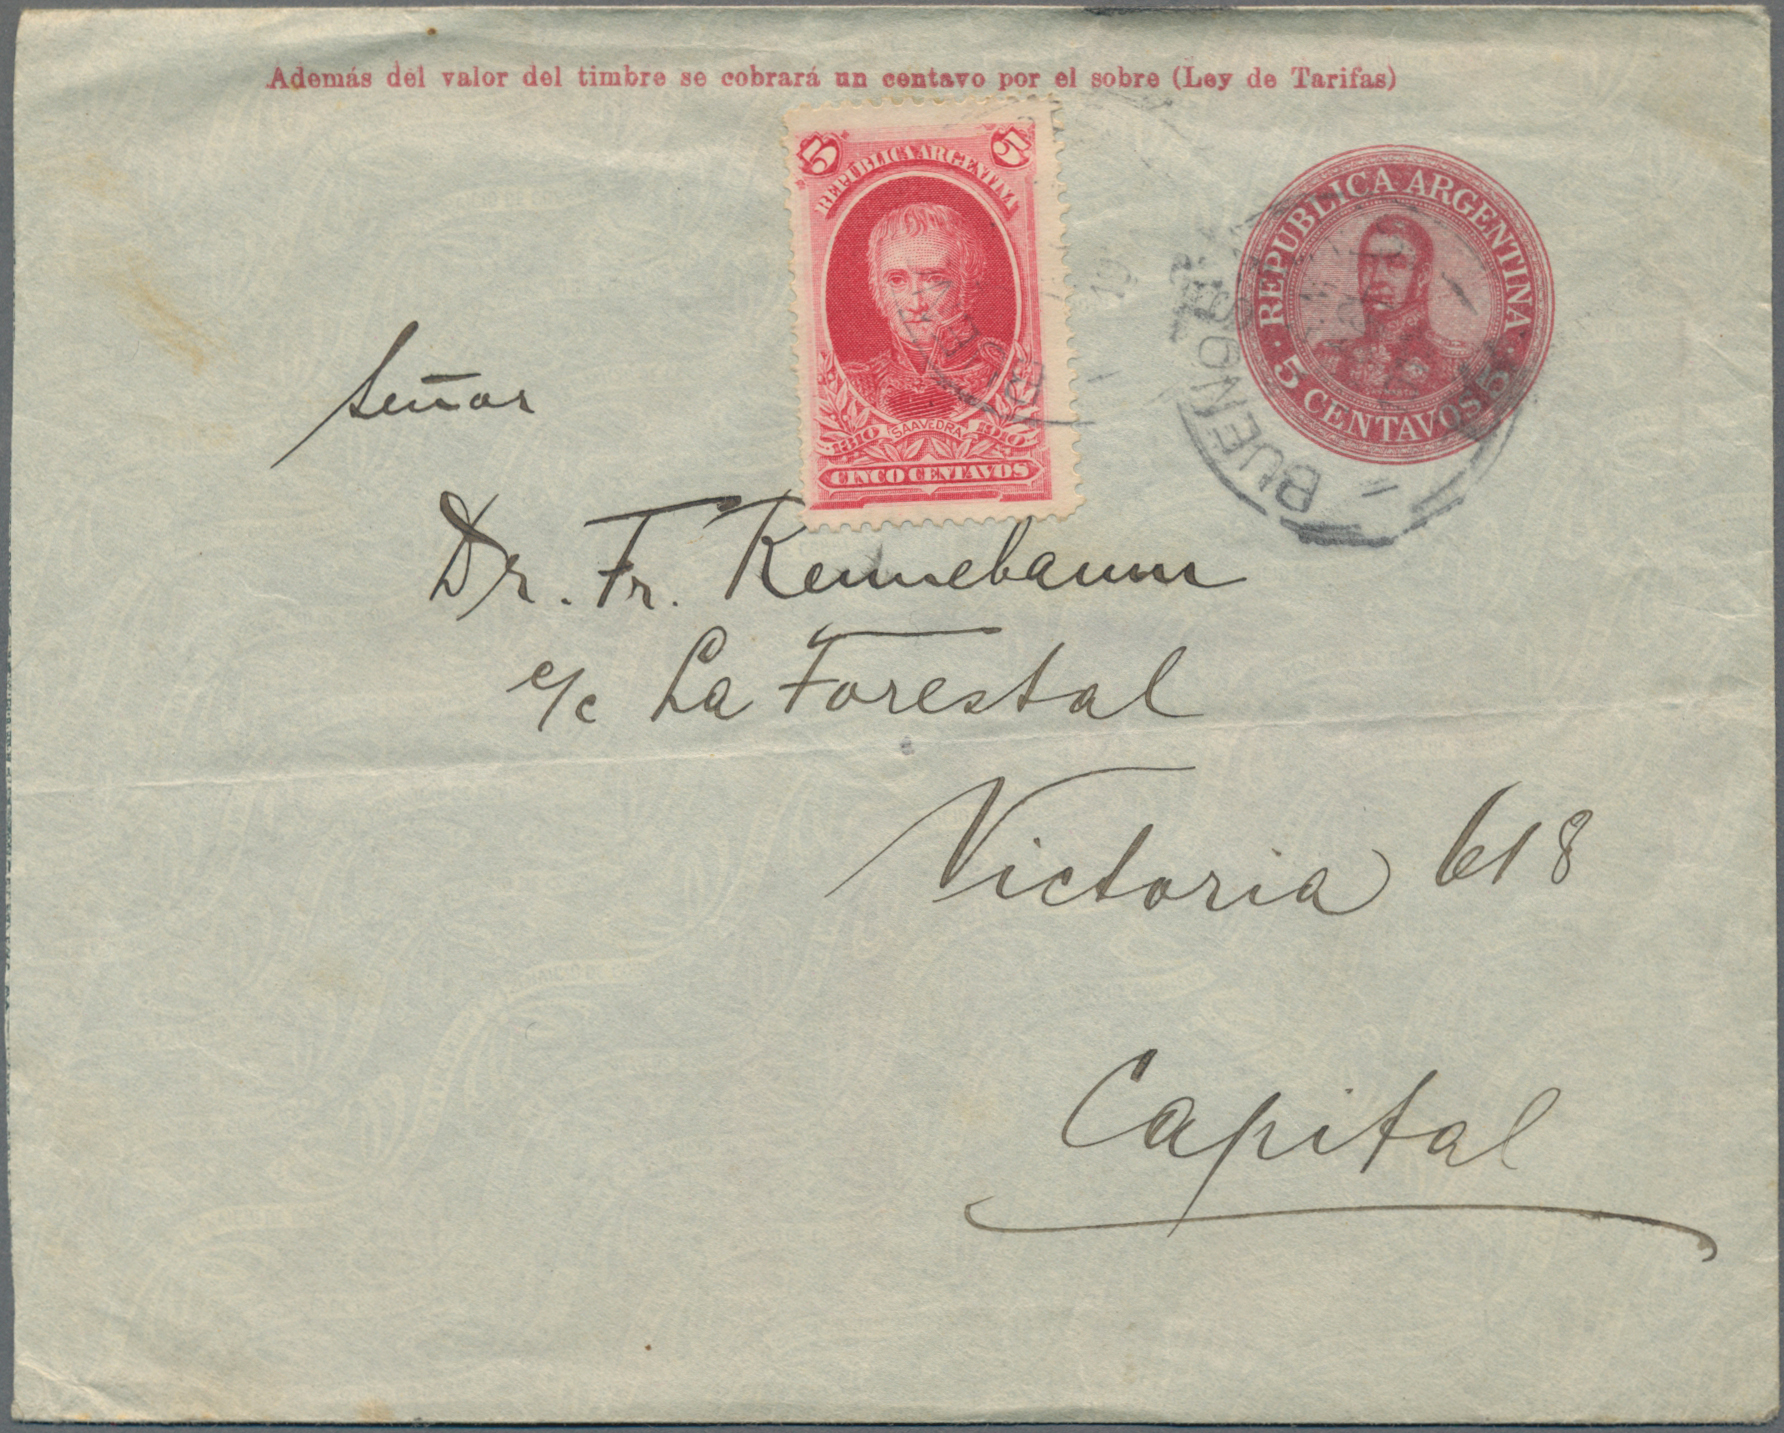 Además del valor del timbre se cobrará un centavo por el sobre (Ley de Tarifas)
5 5
REPUBLICA ARGENTINA
1810 SAAVEDRA 1910
CINCO CENTAVOS
REPUBLICA ARGENTINA
5 CENTAVOS 5
BUENOS
BUEN
19
Señor
Dr. Fr. Kennebaum
c/c La Forestal
Victoria 618
Capital